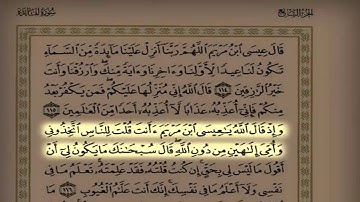 الجزء السابع
سورة المائدة
قَالَ عِيسَى ابْنُ مَرْيَمَ اللَّهُمَّ رَبَّنَا أَنزِلْ عَلَيْنَا مَائِدَةً مِّنَ السَّمَاءِ
تَكُونُ لَنَا عِيدًا لِّأَوَّلِنَا وَءَاخِرِنَا وَءَايَةً مِّنكَ وَارْزُقْنَا وَأَنتَ
خَيْرُ الرَّازِقِينَ ١١٤ قَالَ اللَّهُ إِنِّي مُنَزِّلُهَا عَلَيْكُمْ فَمَن يَكْفُرْ بَعْدُ
مِنكُمْ فَإِنِّي أُعَذِّبُهُ عَذَابًا لَّا أُعَذِّبُهُ أَحَدًا مِّنَ الْعَالَمِينَ ١١٥
وَإِذْ قَالَ اللَّهُ يَاعِيسَى ابْنَ مَرْيَمَ ءَأَنتَ قُلْتَ لِلنَّاسِ اتَّخِذُونِي
وَأُمِّيَ إِلَٰهَيْنِ مِن دُونِ اللَّهِ قَالَ سُبْحَانَكَ مَا يَكُونُ لِي أَنْ
أَقُولَ مَا لَيْسَ لِي بِحَقٍّ إِن كُنتُ قُلْتُهُ فَقَدْ عَلِمْتَهُ تَعْلَمُ مَا فِي
نَفْسِي وَلَا أَعْلَمُ مَا فِي نَفْسِكَ إِنَّكَ أَنتَ عَلَّامُ الْغُيُوبِ ١١٦